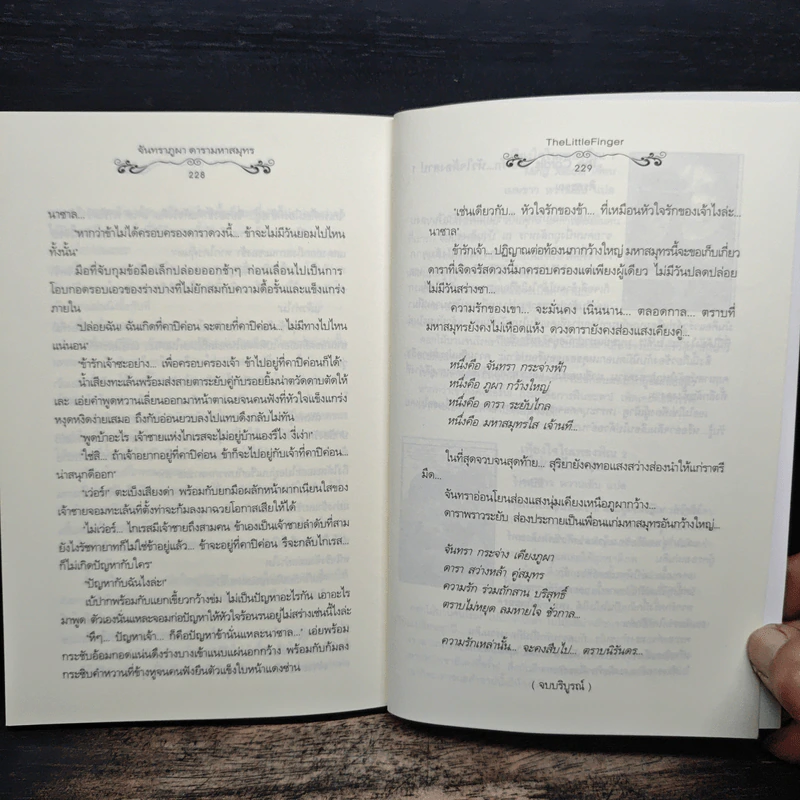 จันทราภูผา ดารามหาสมุทร
228
นาซาล...
"หากว่าข้าไม่ได้ครอบครองดาราดวงนี้... ข้าจะไม่มีวันยอมไปไหน
ทั้งนั้น"
มือที่จับกุมข้อมือเล็กปล่อยออกช้าๆ ก่อนเลื่อนไปเป็นการ
โอบกอดรอบเอวของร่างบางที่ไม่ยักสมกับความดื้อรั้นและแข็งแกร่ง
ภายใน
"ปล่อยฉัน! ฉันเกิดที่คาปิค่อน จะตายที่คาปิค่อน... ไม่มีทางไปไหน
แน่นอน"
"ข้ารักเจ้าซะอย่าง... เพื่อครอบครองเจ้า ข้าไปอยู่ที่คาปิค่อนก็ได้"
น้ำเสียงทะเล้นพร้อมส่งสายตาระยับคู่กับรอยยิ้มน่าตวัดดาบตัดให้
เละ เอ่ยคำพูดหวานเลี่ยนออกมาหน้าตาเฉยจนคนฟังที่หัวใจแข็งแกร่ง
หงุดหงิดง่ายเสมอ ถึงกับอ่อนยวบลงไปแทบดึงกลับไม่ทัน
"พูดบ้าอะไร เจ้าชายแห่งไกเรสจะไม่อยู่บ้านเองรึไง งี่เง่า!"
"ใช่สิ... ถ้าเจ้าอยากอยู่ที่คาปิค่อน ข้าก็จะไปอยู่กับเจ้าที่คาปิค่อน...
น่าสนุกดีออก"
"เว่อร์!" ตะเบ็งเสียงด่า พร้อมกับยกมือผลักหน้าผากเนียนใสของ
เจ้าชายจอมทะเล้นที่ตั้งท่าจะก้มลงมาฉวยโอกาสเสียให้ได้
"ไม่เว่อร์... ไกเรสมีเจ้าชายถึงสามคน ข้าเองเป็นเจ้าชายลำดับที่สาม
ยังไงรัชทายาทก็ไม่ใช่ข้าอยู่แล้ว... ข้าจะอยู่ที่คาปิค่อน รึจะกลับไกเรส...
ก็ไม่เกิดปัญหากับใคร"
"ปัญหากับฉันไงล่ะ!"
เบ้ปากพร้อมกับแยกเขี้ยวกว้างข่ม ไม่เป็นปัญหาอะไรกัน เอาอะไร
มาพูด ตัวเองนั่นแหละจอมก่อปัญหาให้หัวใจร้อนรนอยู่ไม่สร่างเช่นนี้ไงล่ะ
"หึๆ... ปัญหาเจ้า... ก็คือปัญหาข้านั่นแหละนาซาล..." เอ่ยพร้อม
กระชับอ้อมกอดแน่นดึงร่างบางเข้าแนบแผ่นอกกว้าง พร้อมกับก้มลง
กระซิบคำหวานที่ข้างหูจนคนฟังยืนตัวแข็งใบหน้าแดงซ่าน
TheLittleFinger
229
"เช่นเดียวกับ... หัวใจรักของข้า... ที่เหมือนหัวใจรักของเจ้าไงล่ะ...
นาซาล"
ข้ารักเจ้า... ปฏิญาณต่อท้องนภากว้างใหญ่ มหาสมุทรนี้จะขอเก็บเกี่ยว
ดาราที่เจิดจรัสดวงนี้มาครอบครองแต่เพียงผู้เดียว ไม่มีวันปลดปล่อย
ไม่มีวันสร่างซา...
ความรักของเขา... จะมั่นคง เนิ่นนาน... ตลอดกาล... ตราบที่
มหาสมุทรยังคงไม่เหือดแห้ง ดวงดารายังคงส่องแสงเคียงคู่...
หนึ่งคือ จันทรา กระจ่างฟ้า
หนึ่งคือ ภูผา กว้างใหญ่
หนึ่งคือ ดารา ระยับไกล
หนึ่งคือ มหาสมุทรใส เจ้านที...
ในที่สุดจวบจนสุดท้าย... สุริยายังคงทอแสงสว่างส่องนำให้แก่ราตรี
มืด...
จันทราอ่อนโยนส่องแสงนุ่มเคียงเหนือภูผากว้าง...
ดาราพราวระยับ ส่องประกายเป็นเพื่อนแก่มหาสมุทรอันกว้างใหญ่...
จันทรา กระจ่าง เคียงภูผา
ดารา สว่างหล้า คู่สมุทร
ความรัก ร่วมถักสาน บริสุทธิ์
ตราบไม่หยุด ลมหายใจ ชั่วกาล...
ความรักเหล่านั้น... จะคงสืบไป... ตราบนิรันดร...
( จบบริบูรณ์ )